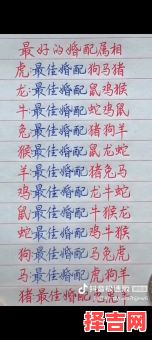 最好的婚配属相
虎:最佳婚配狗马猪
龙:最佳婚配鼠鸡猴
牛:最佳婚配蛇鸡鼠
兔:最佳婚配猪狗羊
猴:最佳婚配鼠龙蛇
羊:最佳婚配猪兔马
鸡:最佳婚配龙牛蛇
鼠:最佳婚配牛猴龙
蛇:最佳婚配鸡牛猴
狗:最佳婚配马兔虎
马:最佳婚配虎狗羊
猪:最佳婚配
择吉网